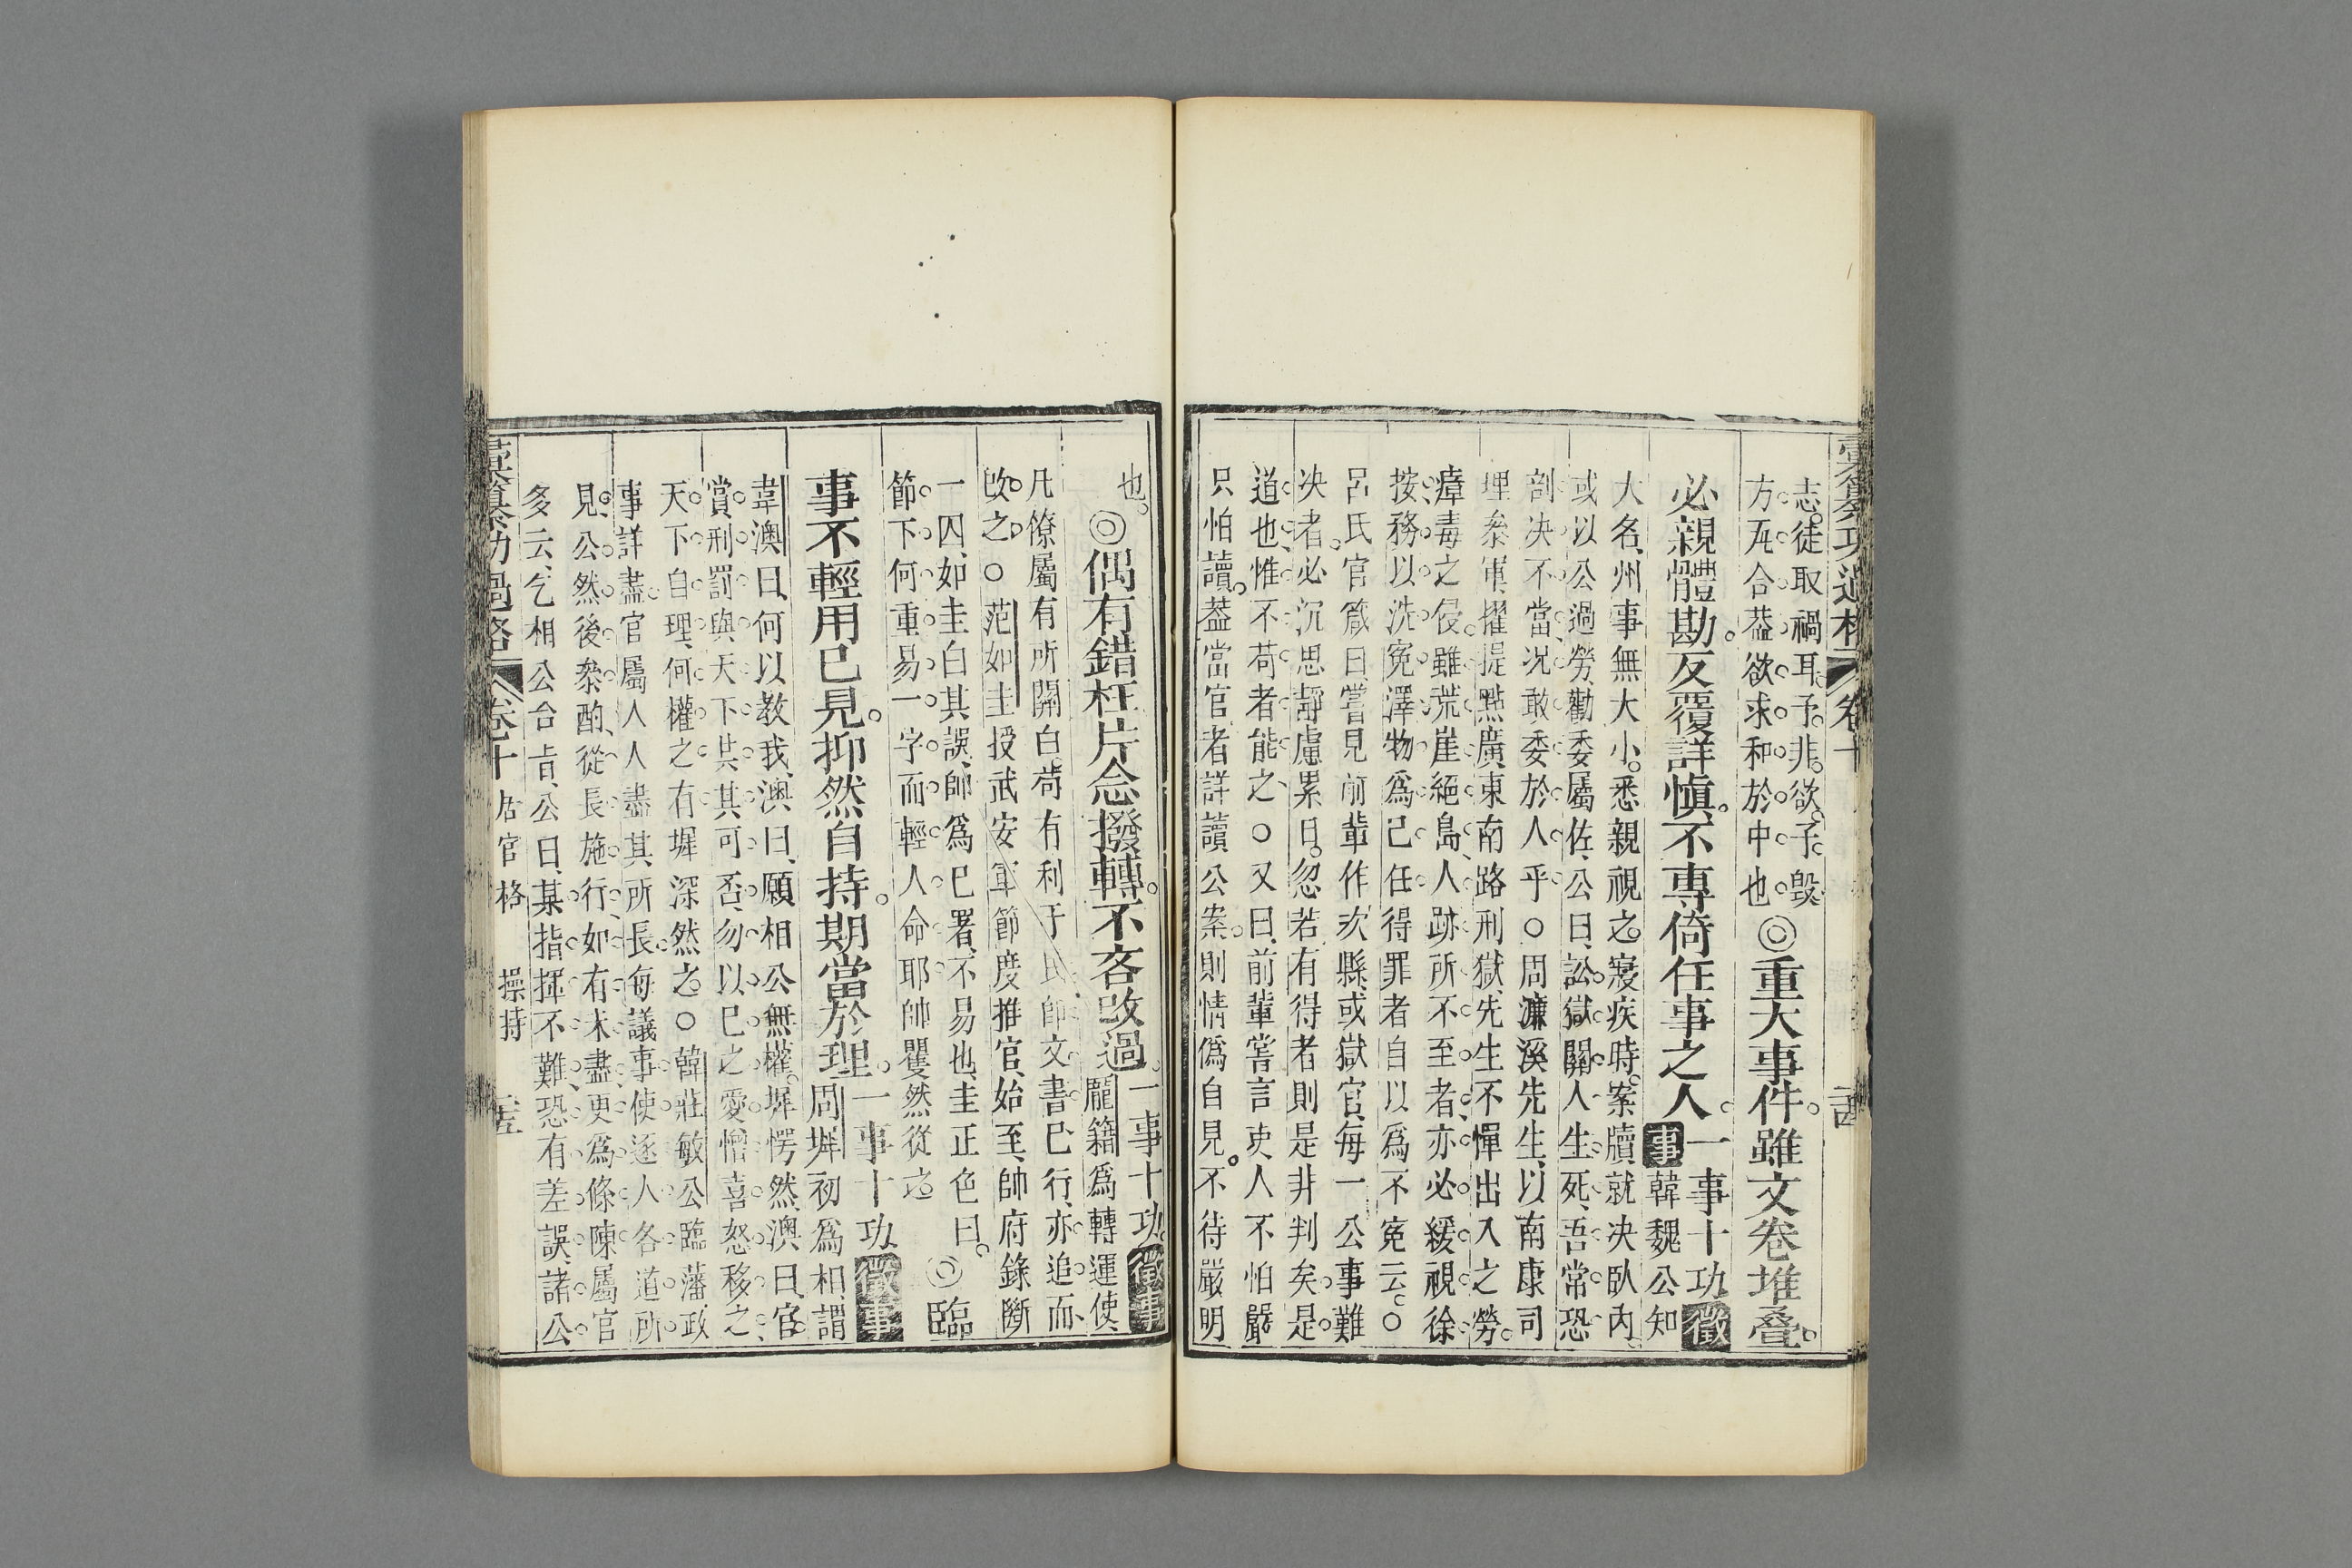 彙纂功過格 卷十
志。徒取禍耳。予。非。欲。子。毀
方瓦合葢欲求和於中也◎重大事件。雖文卷堆疊。
必親體勘。反覆詳慎。不專倚任事之人。一事十功徵
事韓魏公知
大名、州事無大小。悉親視之。寢疾時。案牘就决臥內。
或以公過勞、勸委屬佐、公曰、訟獄關人生死、吾常恐
剖决不當、况敢委於人乎○周濂溪先生、以南康司
理叅軍、擢提點廣東南路刑獄、先生不憚出入之勞。
瘴毒之侵、雖荒崖絕島、人跡所不至者、亦必緩視徐
按、務以洗寃澤物爲己任、得罪者自以爲不寃云。○
呂氏官箴曰嘗見前輩作次縣、或獄官、每一公事難
决者。必沉思靜慮累日。忽若有得者則是非判矣。是
道也、惟不苟者能之、○又曰、前輩嘗言吏人不怕嚴
只怕讀。葢當官者詳讀公案。則情僞自見。不待嚴明
也。◎偶有錯枉片念撥轉。不吝改過。一事十功。徵事
龎籍爲轉運使、
凡僚屬有所關白、苟有利于民、卽文書已行、亦追而
改之。○范如圭授武安軍節度推官、始至、帥府錄斷
一囚、如圭白其誤、帥爲已署、不易也、圭正色曰。
節下何重易一字而輕人命耶、帥瞿然從之◎臨
事不輕用已見。抑然自持。期當於理。一事十功徵事
周墀初爲相、謂
韋澳曰、何以教我、澳曰、願相公無權。墀愕然、澳曰、官
賞刑罰與天下共其可否、勿以已之愛憎喜怒移之、
天下自理、何權之有、墀深然之○韓莊敏公臨藩、政
事詳盡。官屬人人盡其所長。每議事、使逐人各道所
見。公然後叅酌、從長施行、如有未盡、更爲條陳、屬官
多云、乞相公台旨、公曰、某指揮不難、恐有差誤、諸公
彙纂功過格 卷十 居官格 操持